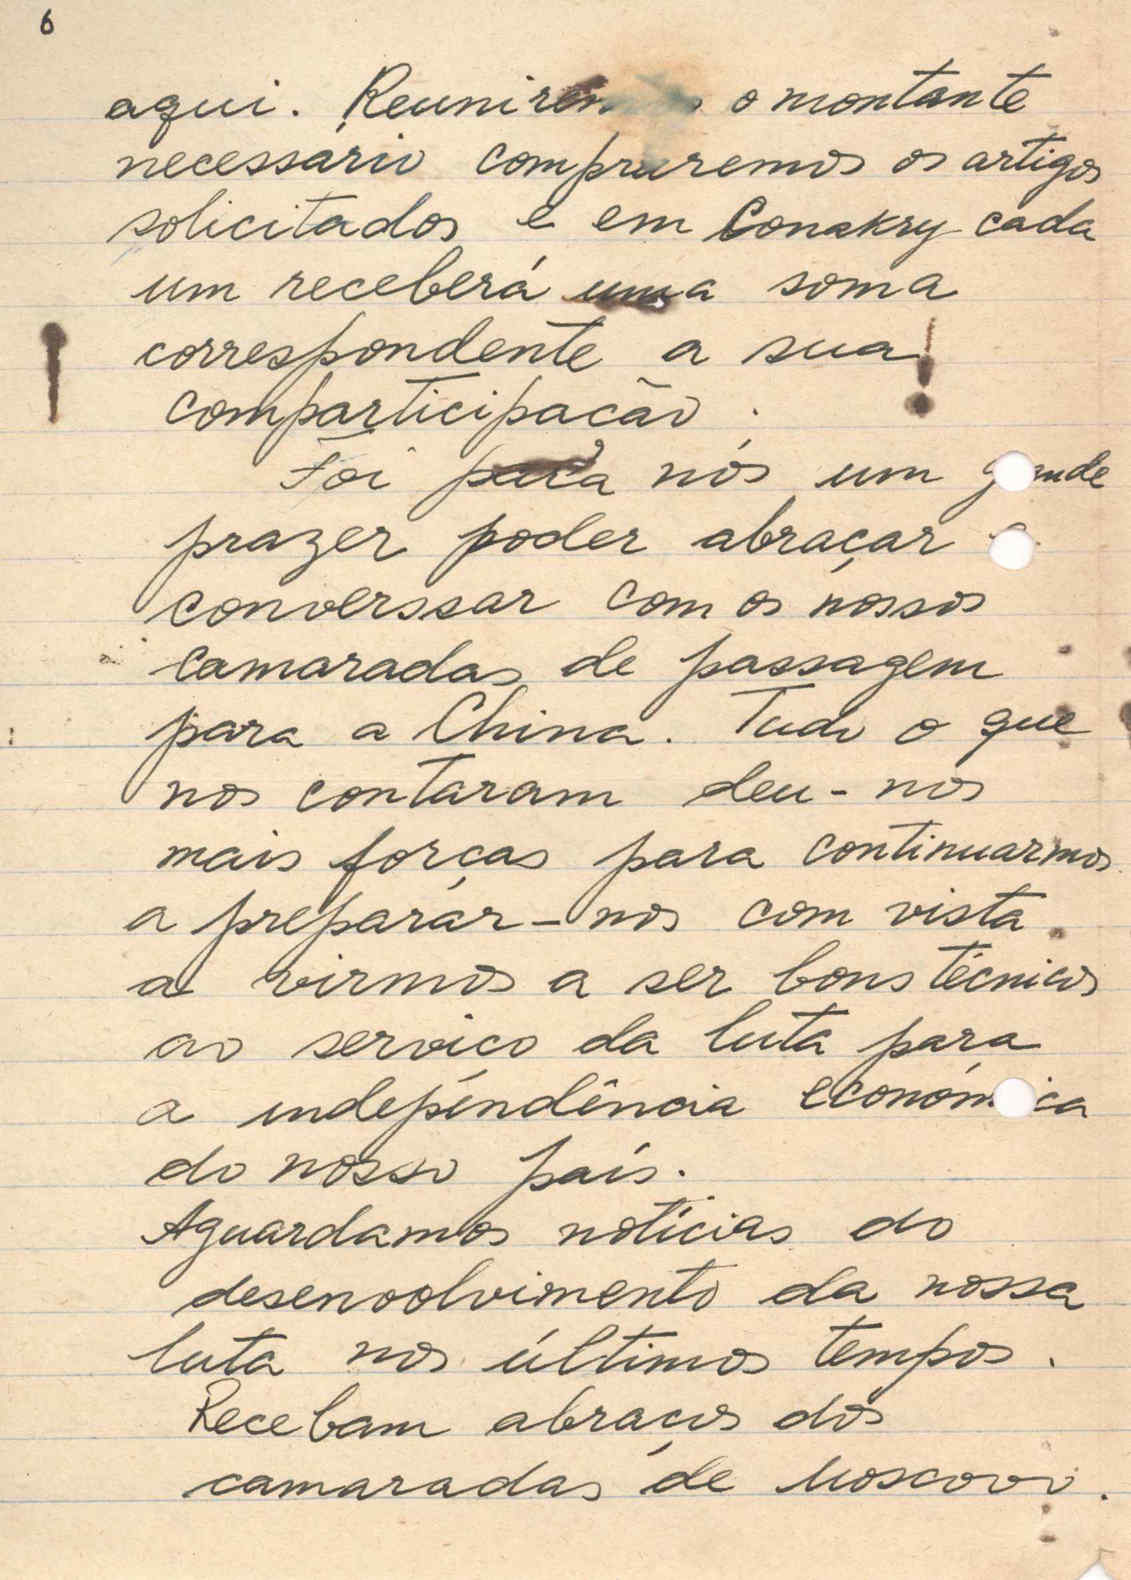 6
aqui. Reuniremos o montante
necessário compraremos os artigos
solicitados e em Conakry cada
um receberá uma soma
correspondente a sua
comparticipacão.
Foi para nós um grande
prazer poder abraçar
converssar com os nossos
camaradas de passagem
para a China. Tudo o que
nos contaram deu-nos
mais forças para continuarmos
a preparár-nos com vista
a virmos a ser bons técnicos
ao serviço da luta para
a indepêndência económica
do nosso país.
Aguardamos notícias do
desenvolvimento da nossa
luta nos últimos tempos.
Recebam abraços dos
camaradas de Moscovo.